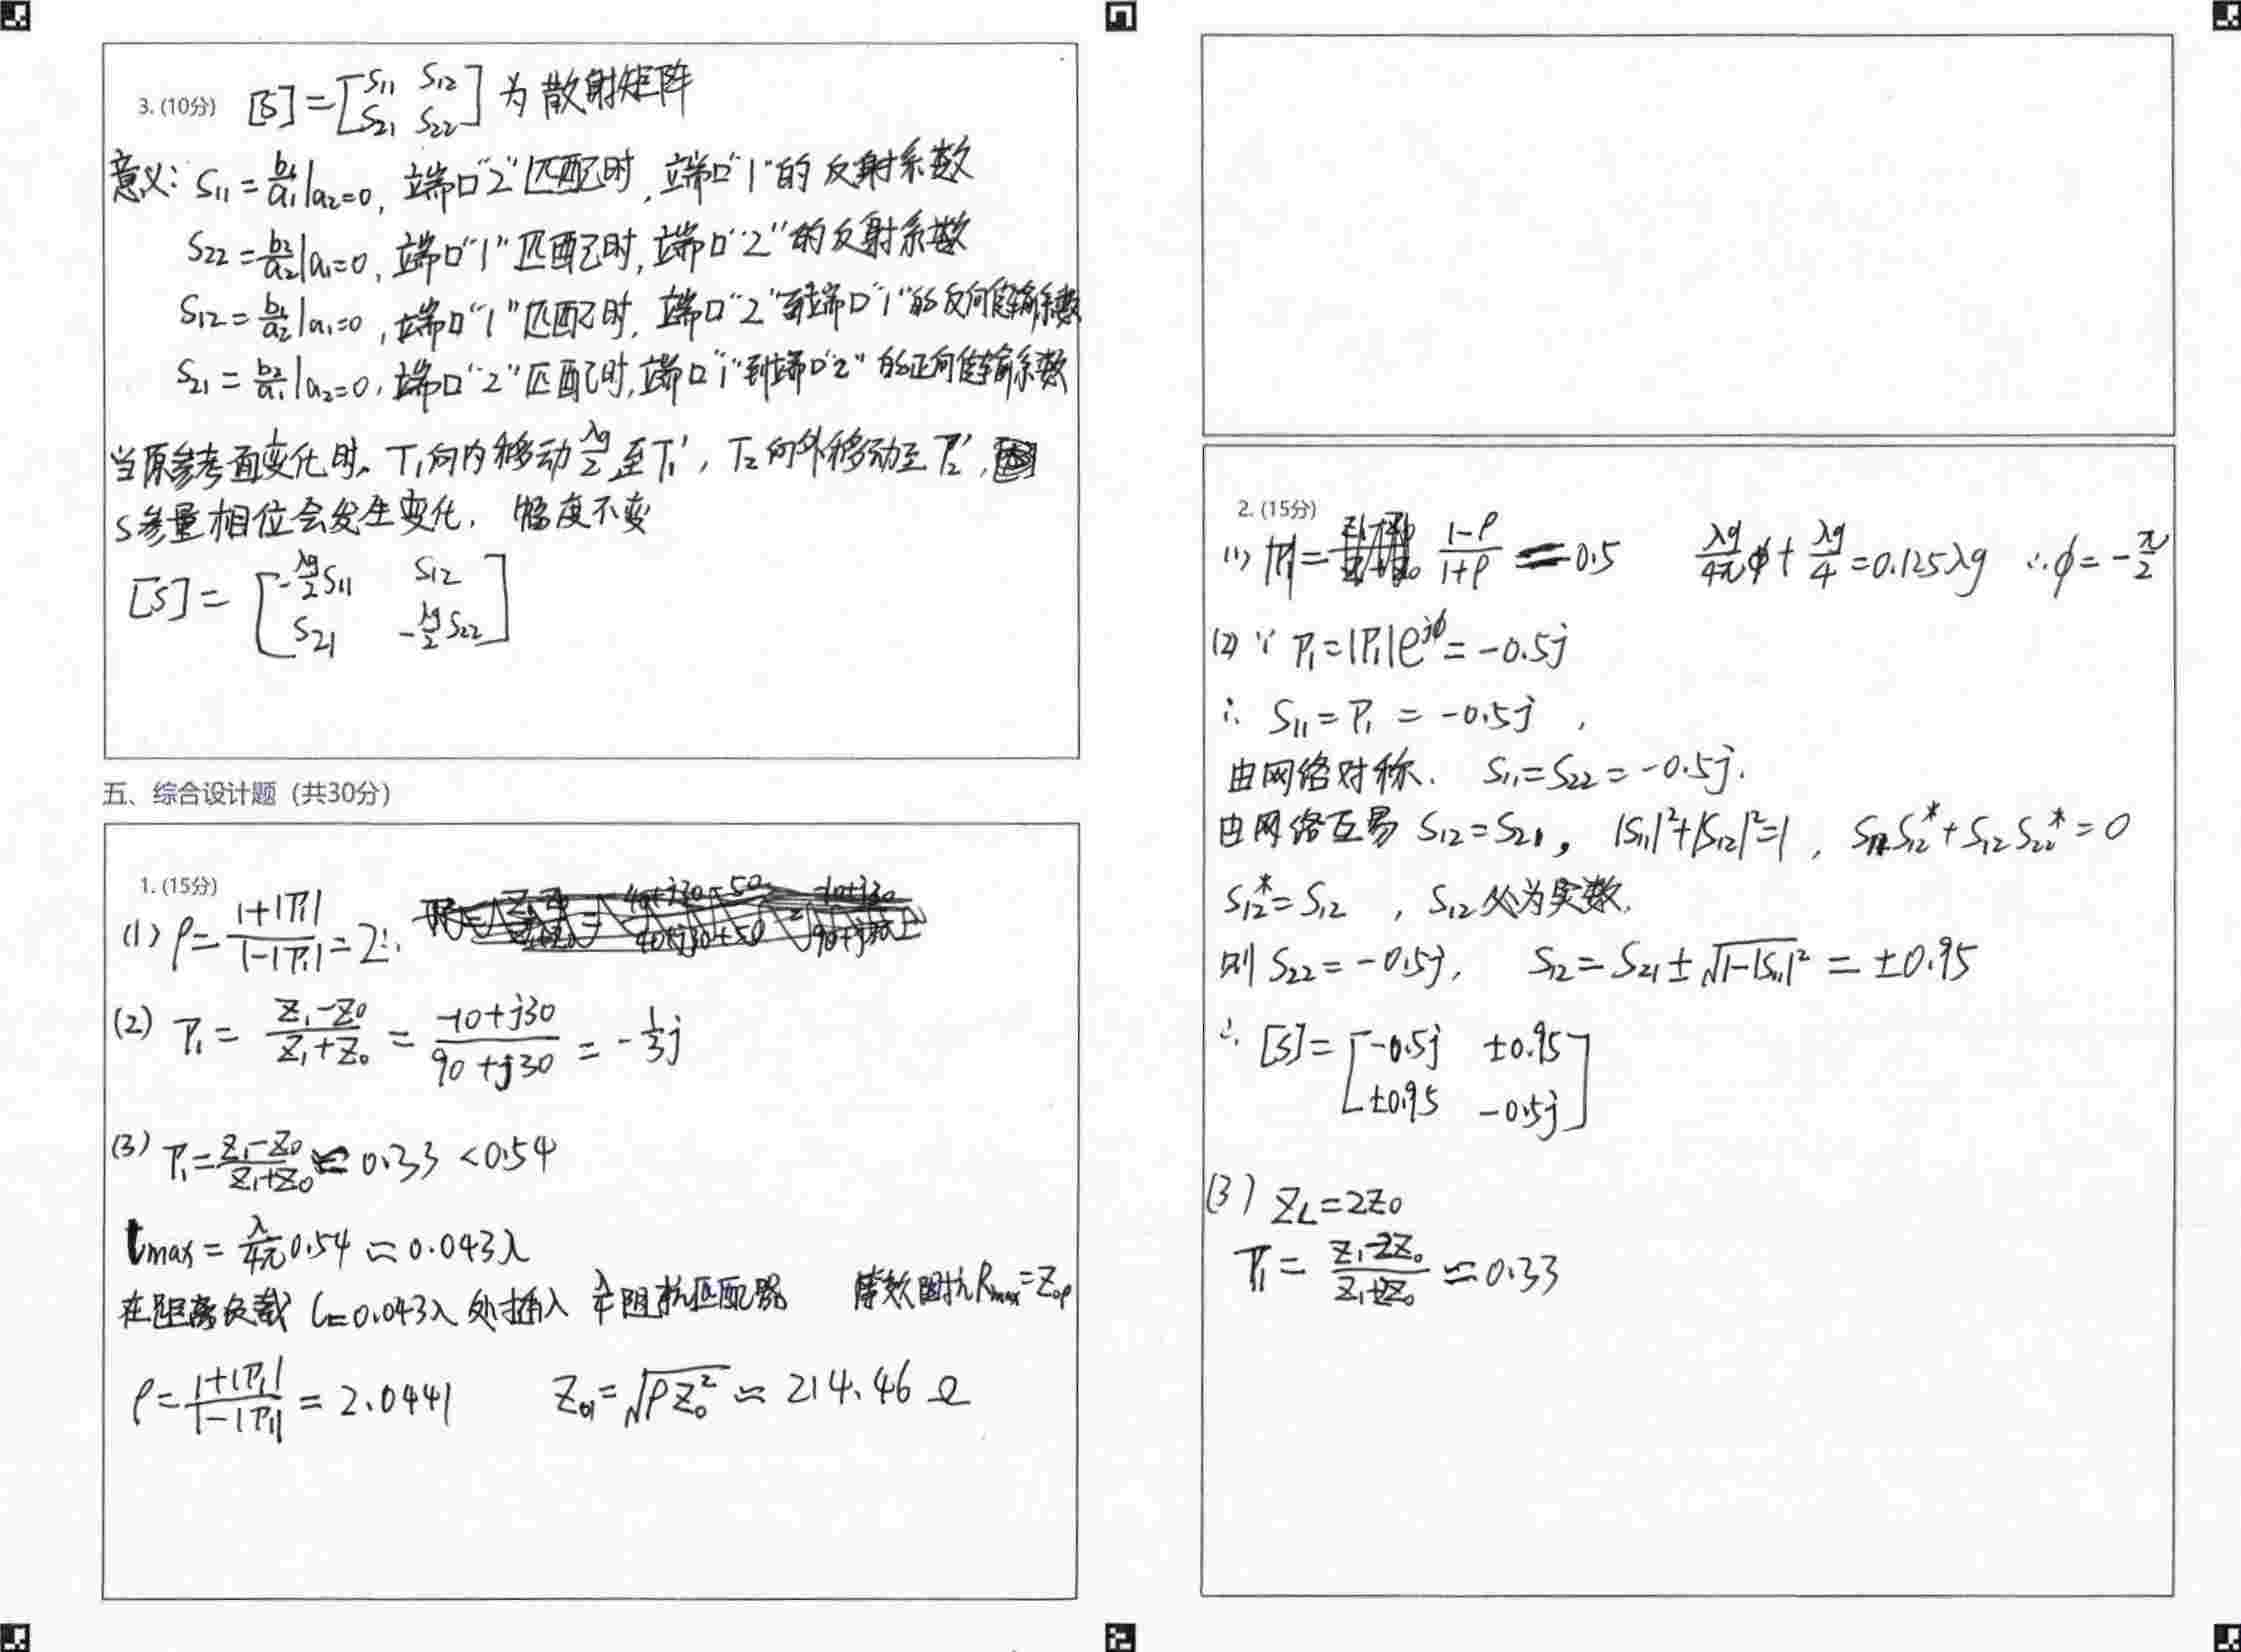 3. (10分) [S] = [S11 S12 S21 S22] 为散射矩阵
意义: S11 = b1/a1|a2=0, 端口"2"匹配时, 端口"1"的反射系数
S22 = b2/a2|a1=0, 端口"1"匹配时, 端口"2"的反射系数
S12 = b1/a2|a1=0, 端口"1"匹配时, 端口"2"到端口"1"的反向传输系数
S21 = b2/a1|a2=0, 端口"2"匹配时, 端口"1"到端口"2"的正向传输系数
当原参考面变化时, T1向内移动λg/2至T1', T2向外移动至T2',
S参量相位会发生变化, 幅度不变
[S] = [-λg/2 S11 S12 S21 -λg/2 S22]
五、综合设计题 (共30分)
1. (15分)
(1) ρ = (1+|Γ1|)/(1-|Γ1|) = 2
(2) Γ1 = (Z1-Z0)/(Z1+Z0) = (-10+j30)/(90+j30) = -1/3 j
(3) Γ1 = (Z1-Z0)/(Z1+Z0) ≈ 0.33 < 0.54
lmax = λ/4π 0.54 ≈ 0.043λ
在距离负载 l=0.043λ 处插入 λ/4 阻抗匹配器 等效阻抗Rmax=Z0ρ
ρ = (1+|Γ1|)/(1-|Γ1|) = 2.0441 Z01 = √(ρZ0²) ≈ 214.46 Ω
2. (15分)
(1) |Γ1| = (1-ρ)/(1+ρ) = 0.5 λg/4π φ + λg/4 = 0.125λg ∴ φ = -π/2
(2) ∵ Γ1 = |Γ1|e^jφ = -0.5j
∴ S11 = Γ1 = -0.5j ,
由网络对称. S11 = S22 = -0.5j.
由网络互易 S12 = S21, |S11|²+|S12|²=1, S11S12* + S12S22* = 0
S12* = S12 , S12必为实数.
则 S22 = -0.5j, S12 = S21 ± √(1-|S11|²) = ±0.95
∴ [S] = [-0.5j ±0.95 ±0.95 -0.5j]
(3) ZL = 2Z0
Γ1 = (Z1-2Z0)/(Z1+2Z0) ≈ 0.33